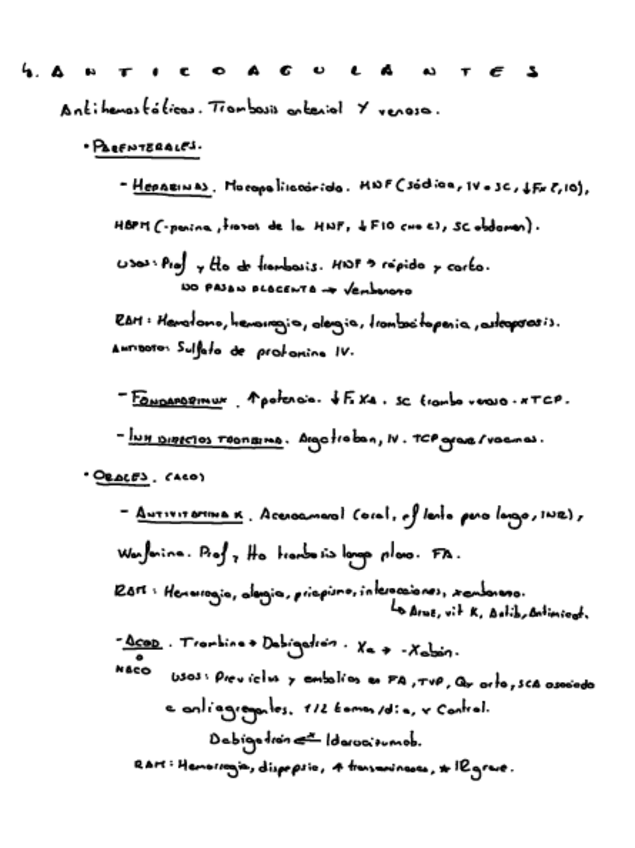 4. ANTICOAGULANTES
Antihemostáticos. Trombosis arterial y venosa.
• PARENTERALES.
- HEPARINAS. Mucopolisacárido. HNF (sódica, IV o SC, ↓Fx 2, 10),
HBPM (-parina, trozos de la HNF, ↓F10 (no 2), SC abdomen).
Usos: Prof y tto de trombosis. HNF → rápido y corto.
NO PASAN PLACENTA → Vembarazo
RAM: Hematoma, hemorragia, alergia, trombocitopenia, osteoporosis.
ANTIDOTO: Sulfato de protamina IV.
- FONDAPARINUX. ↑potencia. ↓Fx Xa. SC trombo venoso. xTCP.
- INH DIRECTOS TROMBINA. Argatroban, IV. TCP grave/vacunas.
• ORALES. (ACO)
- ANTIVITAMINA K. Acenocumarol (oral, ef lento pero largo, INR),
Warfarina. Prof y tto trombosis largo plazo. FA.
RAM: Hemorragia, alergia, priapismo, interacciones, xembarazo.
↳ AINE, vit K, Antib, Antimicot.
- ACOD. Trombina → Dabigatrán. Xa → -Xabán.
o
NACO
Usos: Prev ictus y embolias en FA, TVP, Qx orto, SCA asociado
a antiagregantes. 1/2 tomas/día, x Control.
Dabigatrán ⇐x Idarucizumab.
RAM: Hemorragia, dispepsia, ↑ transaminasas, * IR grave.